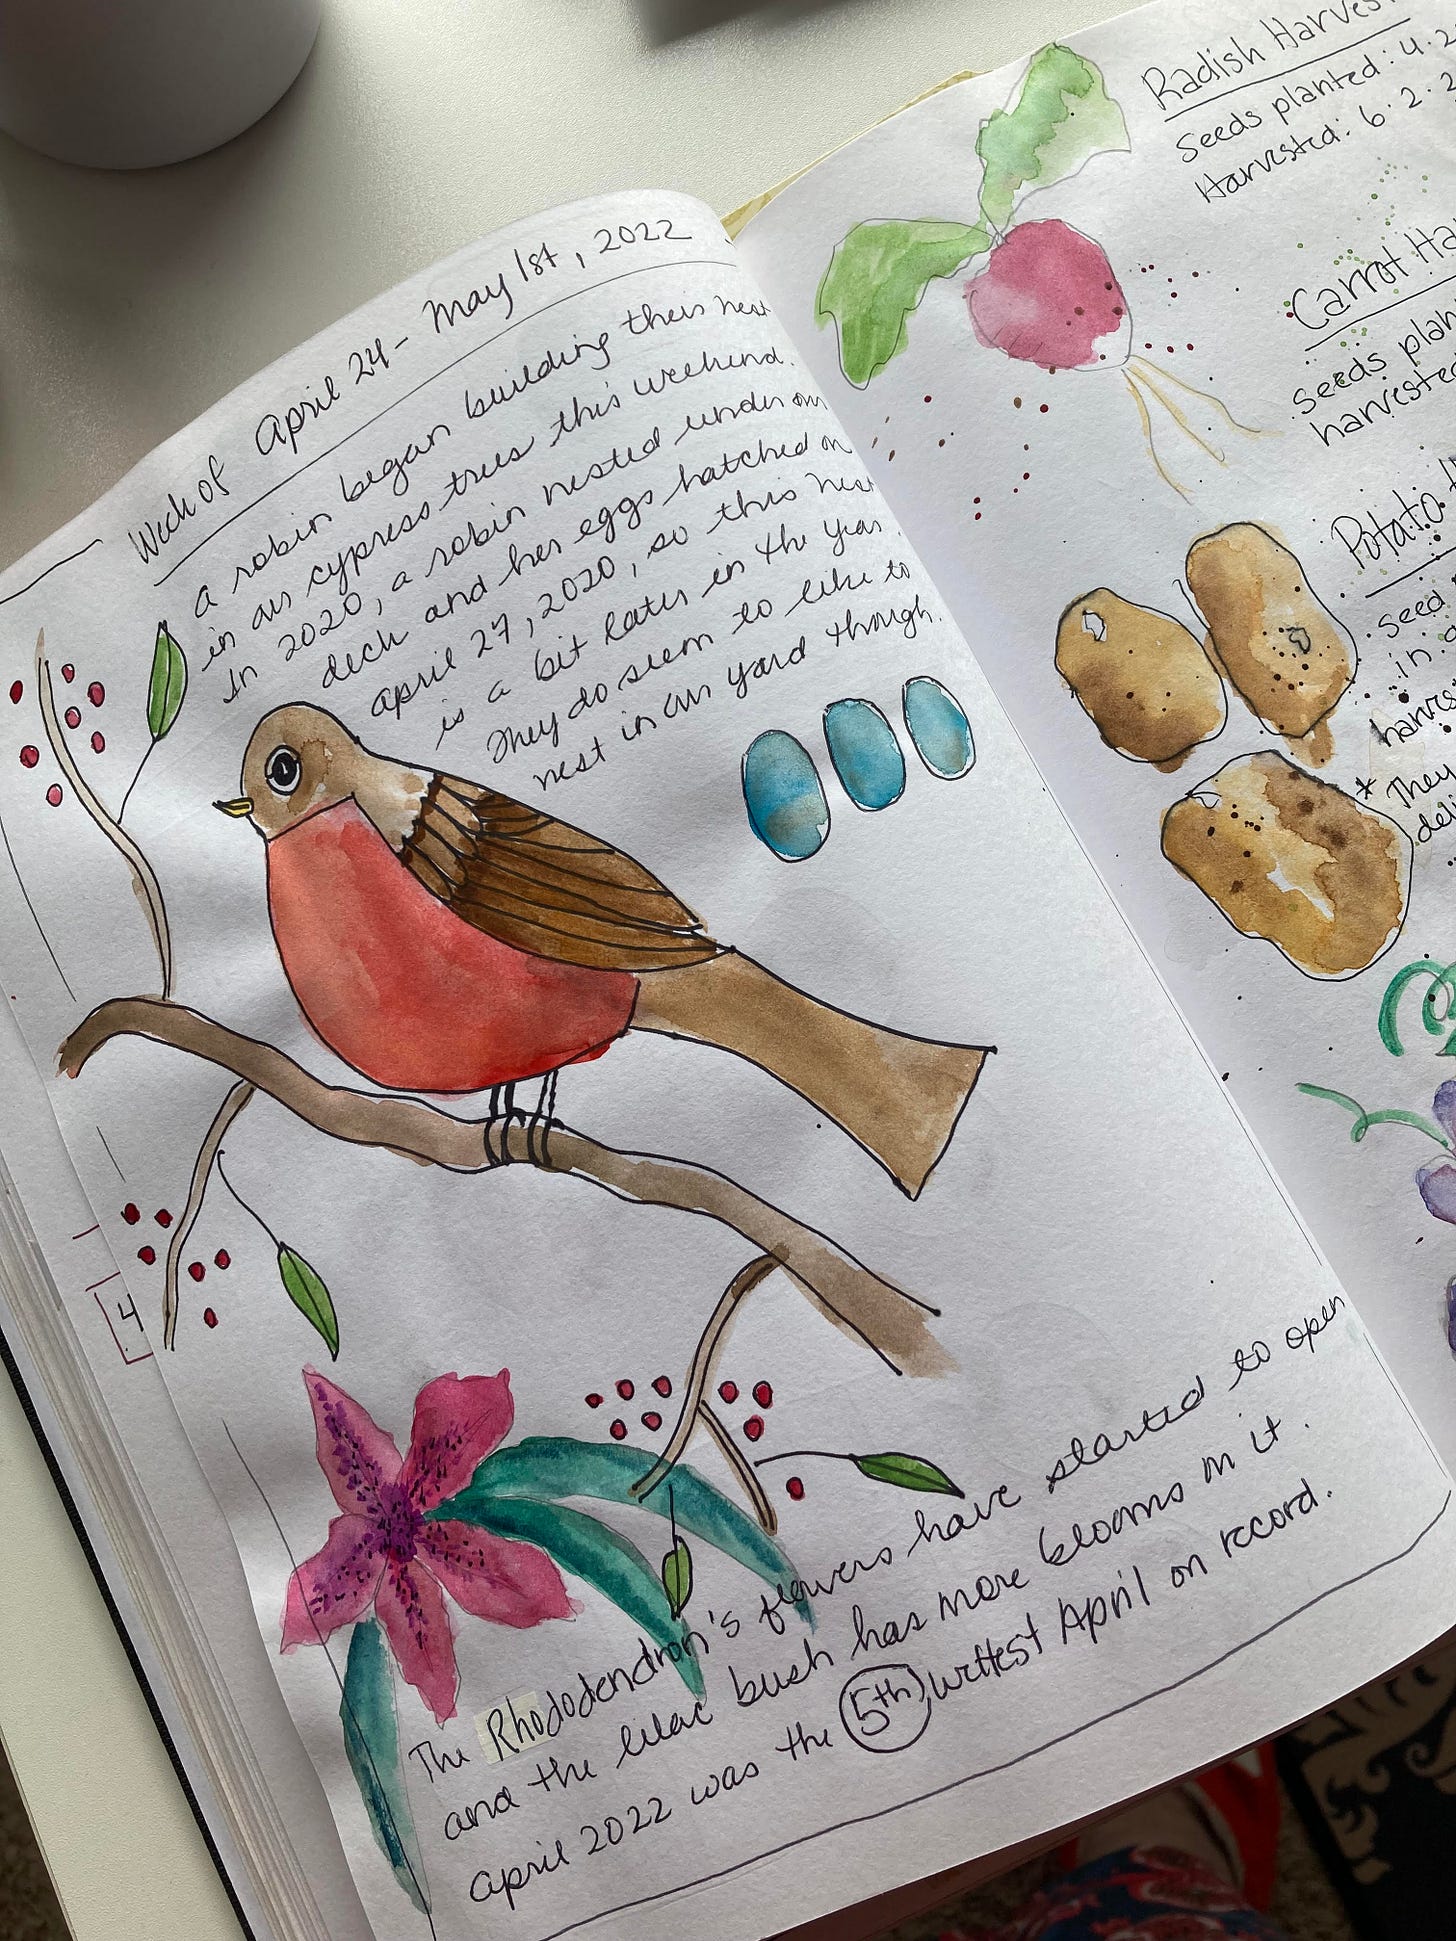 Week of April 24 - May 1st, 2022
A robin began building their nest
in our cypress trees this weekend.
In 2020, a robin nested under our
deck and her eggs hatched on
April 27, 2020, so this nest
is a bit later in the year.
They do seem to like to
nest in our yard though.
4
The Rhododendron's flowers have started to open
and the lilac bush has more blooms on it.
April 2022 was the 5th wettest April on record.
Radish Harvest
Seeds planted: 4.2
Harvested: 6.2.2
Carrot Ha
seeds plan
harvested
Potato
seed
in
harves
* They
deli